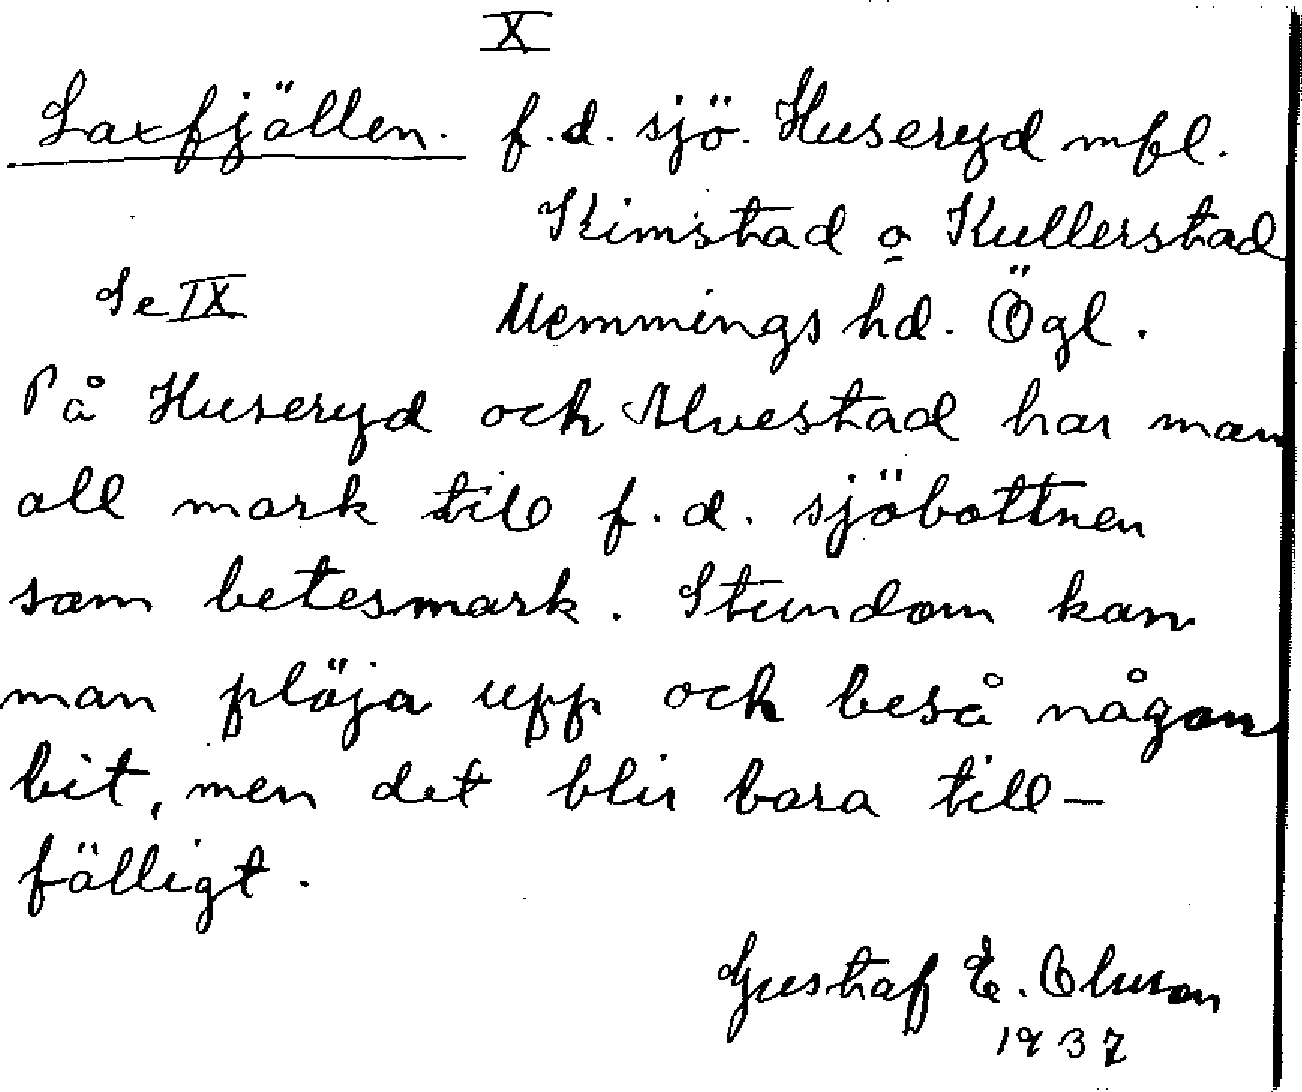 X
Laxfjällen. f.d. sjö. Huseryd mfl.
Kimstad o Kullerstad
Se IX Memmings hd. Ögl.
På Huseryd och Alvestad har man
all mark till f.d. sjöbottnen
som betesmark. Stundom kan
man plöja upp och beså någon
bit, men det blir bara till-
fälligt.
Gustaf E. Olsson
1937